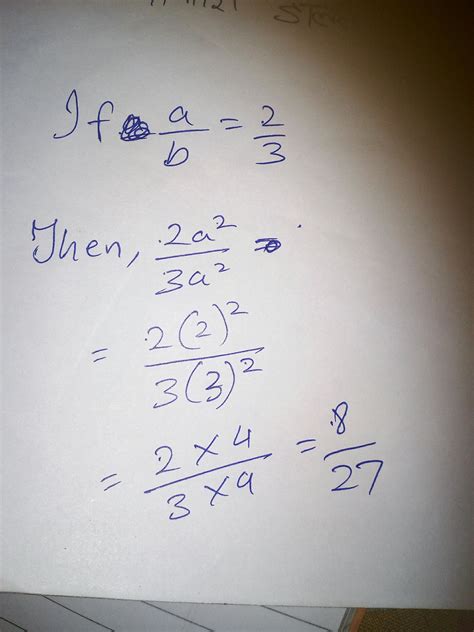 If a/b = 2/3
Then, 2a²/3a² =
= 2(2)²/3(3)²
= 2 × 4/3 × 9 = 8/27